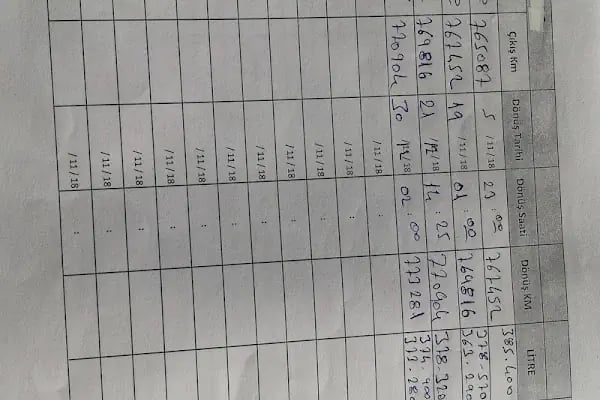 Çıkış Km Dönüş Tarihi Dönüş Saati Dönüş KM LİTRE
385.400
765087 5 /11/18 23:00 767452 378-570
767452 19 /11/18 01:00 769816 363.290
769816 21 /11/18 14:25 770904 378-320
374.400
770904 30 /11/18 02:00 773281 373.280
/11/18
/11/18 :
/11/18 :
/11/18 :
/11/18 :
/11/18 :
/11/18 :
/11/18 :
/11/18 :
/11/18 :